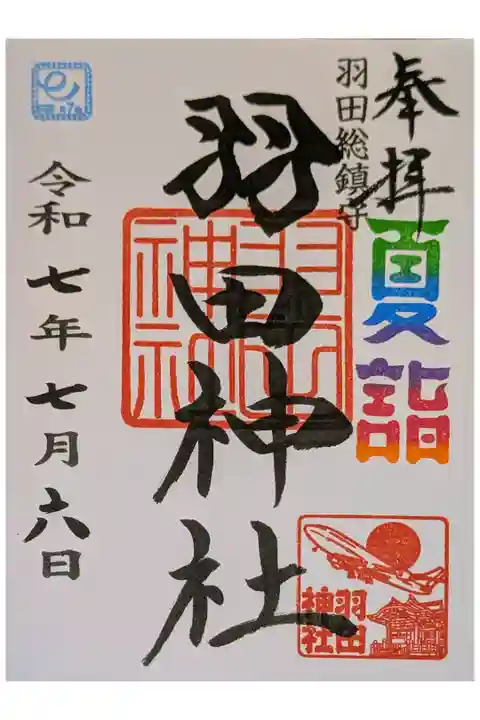 奉拝
羽田総鎮守
夏詣
羽田神社
羽田
神社
令和七年七月六日